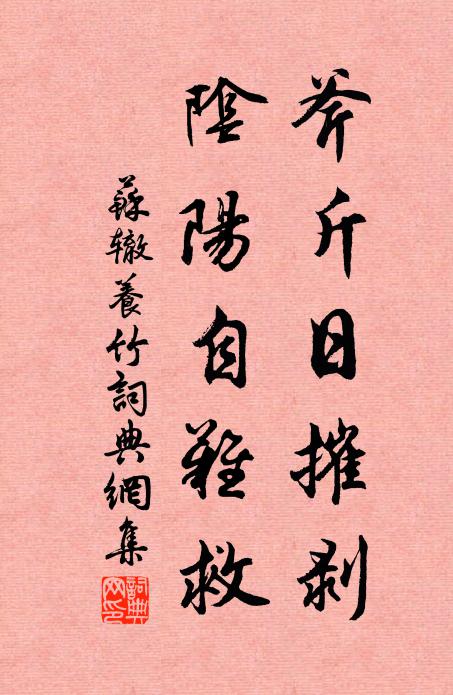 斧斤日摧剥
陰陽自難救
蘇辙養竹詞典網集
詞典網印